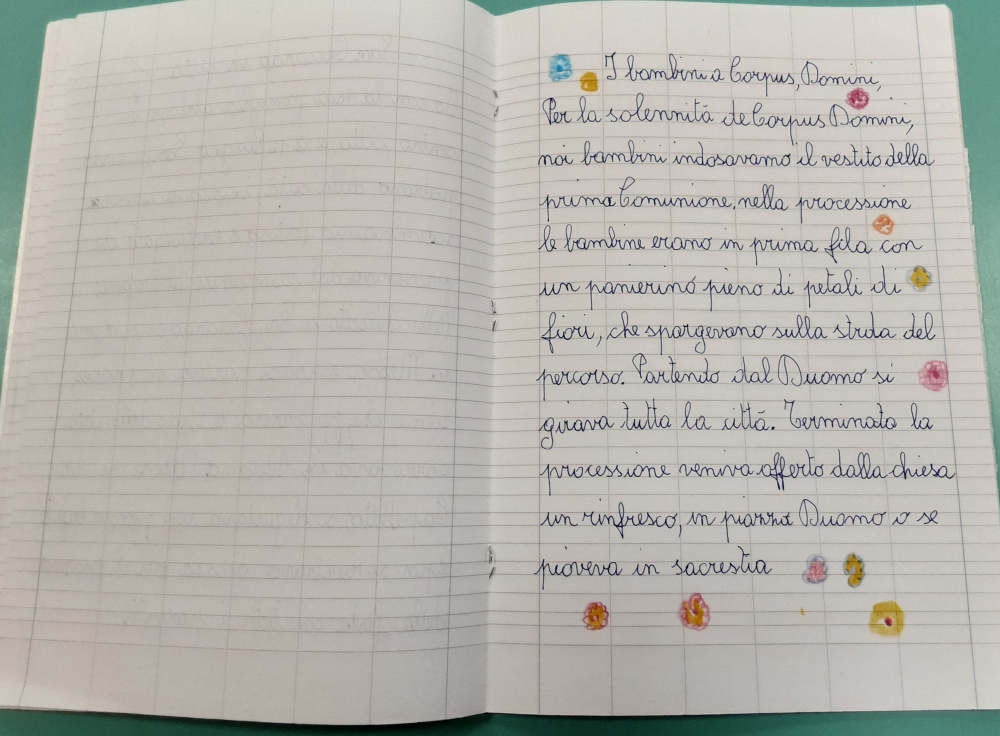 I bambini a Corpus, Domini,
Per la solennità de Corpus Domini,
noi bambini indosavamo il vestito della
prima Comunione. nella processione
le bambine erano in prima fila con
un panierino pieno di petali di
fiori, che spargevano sulla strda del
percorso. Partendo dal Duomo si
girava tutta la città. Terminata la
processione veniva offerto dalla chiesa
un rinfresco, in piazza Duomo o se
pioveva in sacrestia